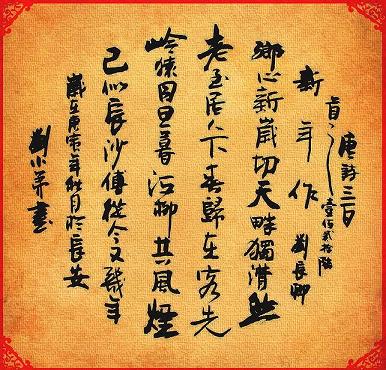 唐詩三百
首之壹佰貳拾陸
新年作 劉長卿
鄉心新歲切天畔獨潸然
老至居人下春歸在客先
嶺猿同旦暮江柳共風煙
已似長沙傅從今又幾年
歲在庚寅年秋月於長安
劉小書